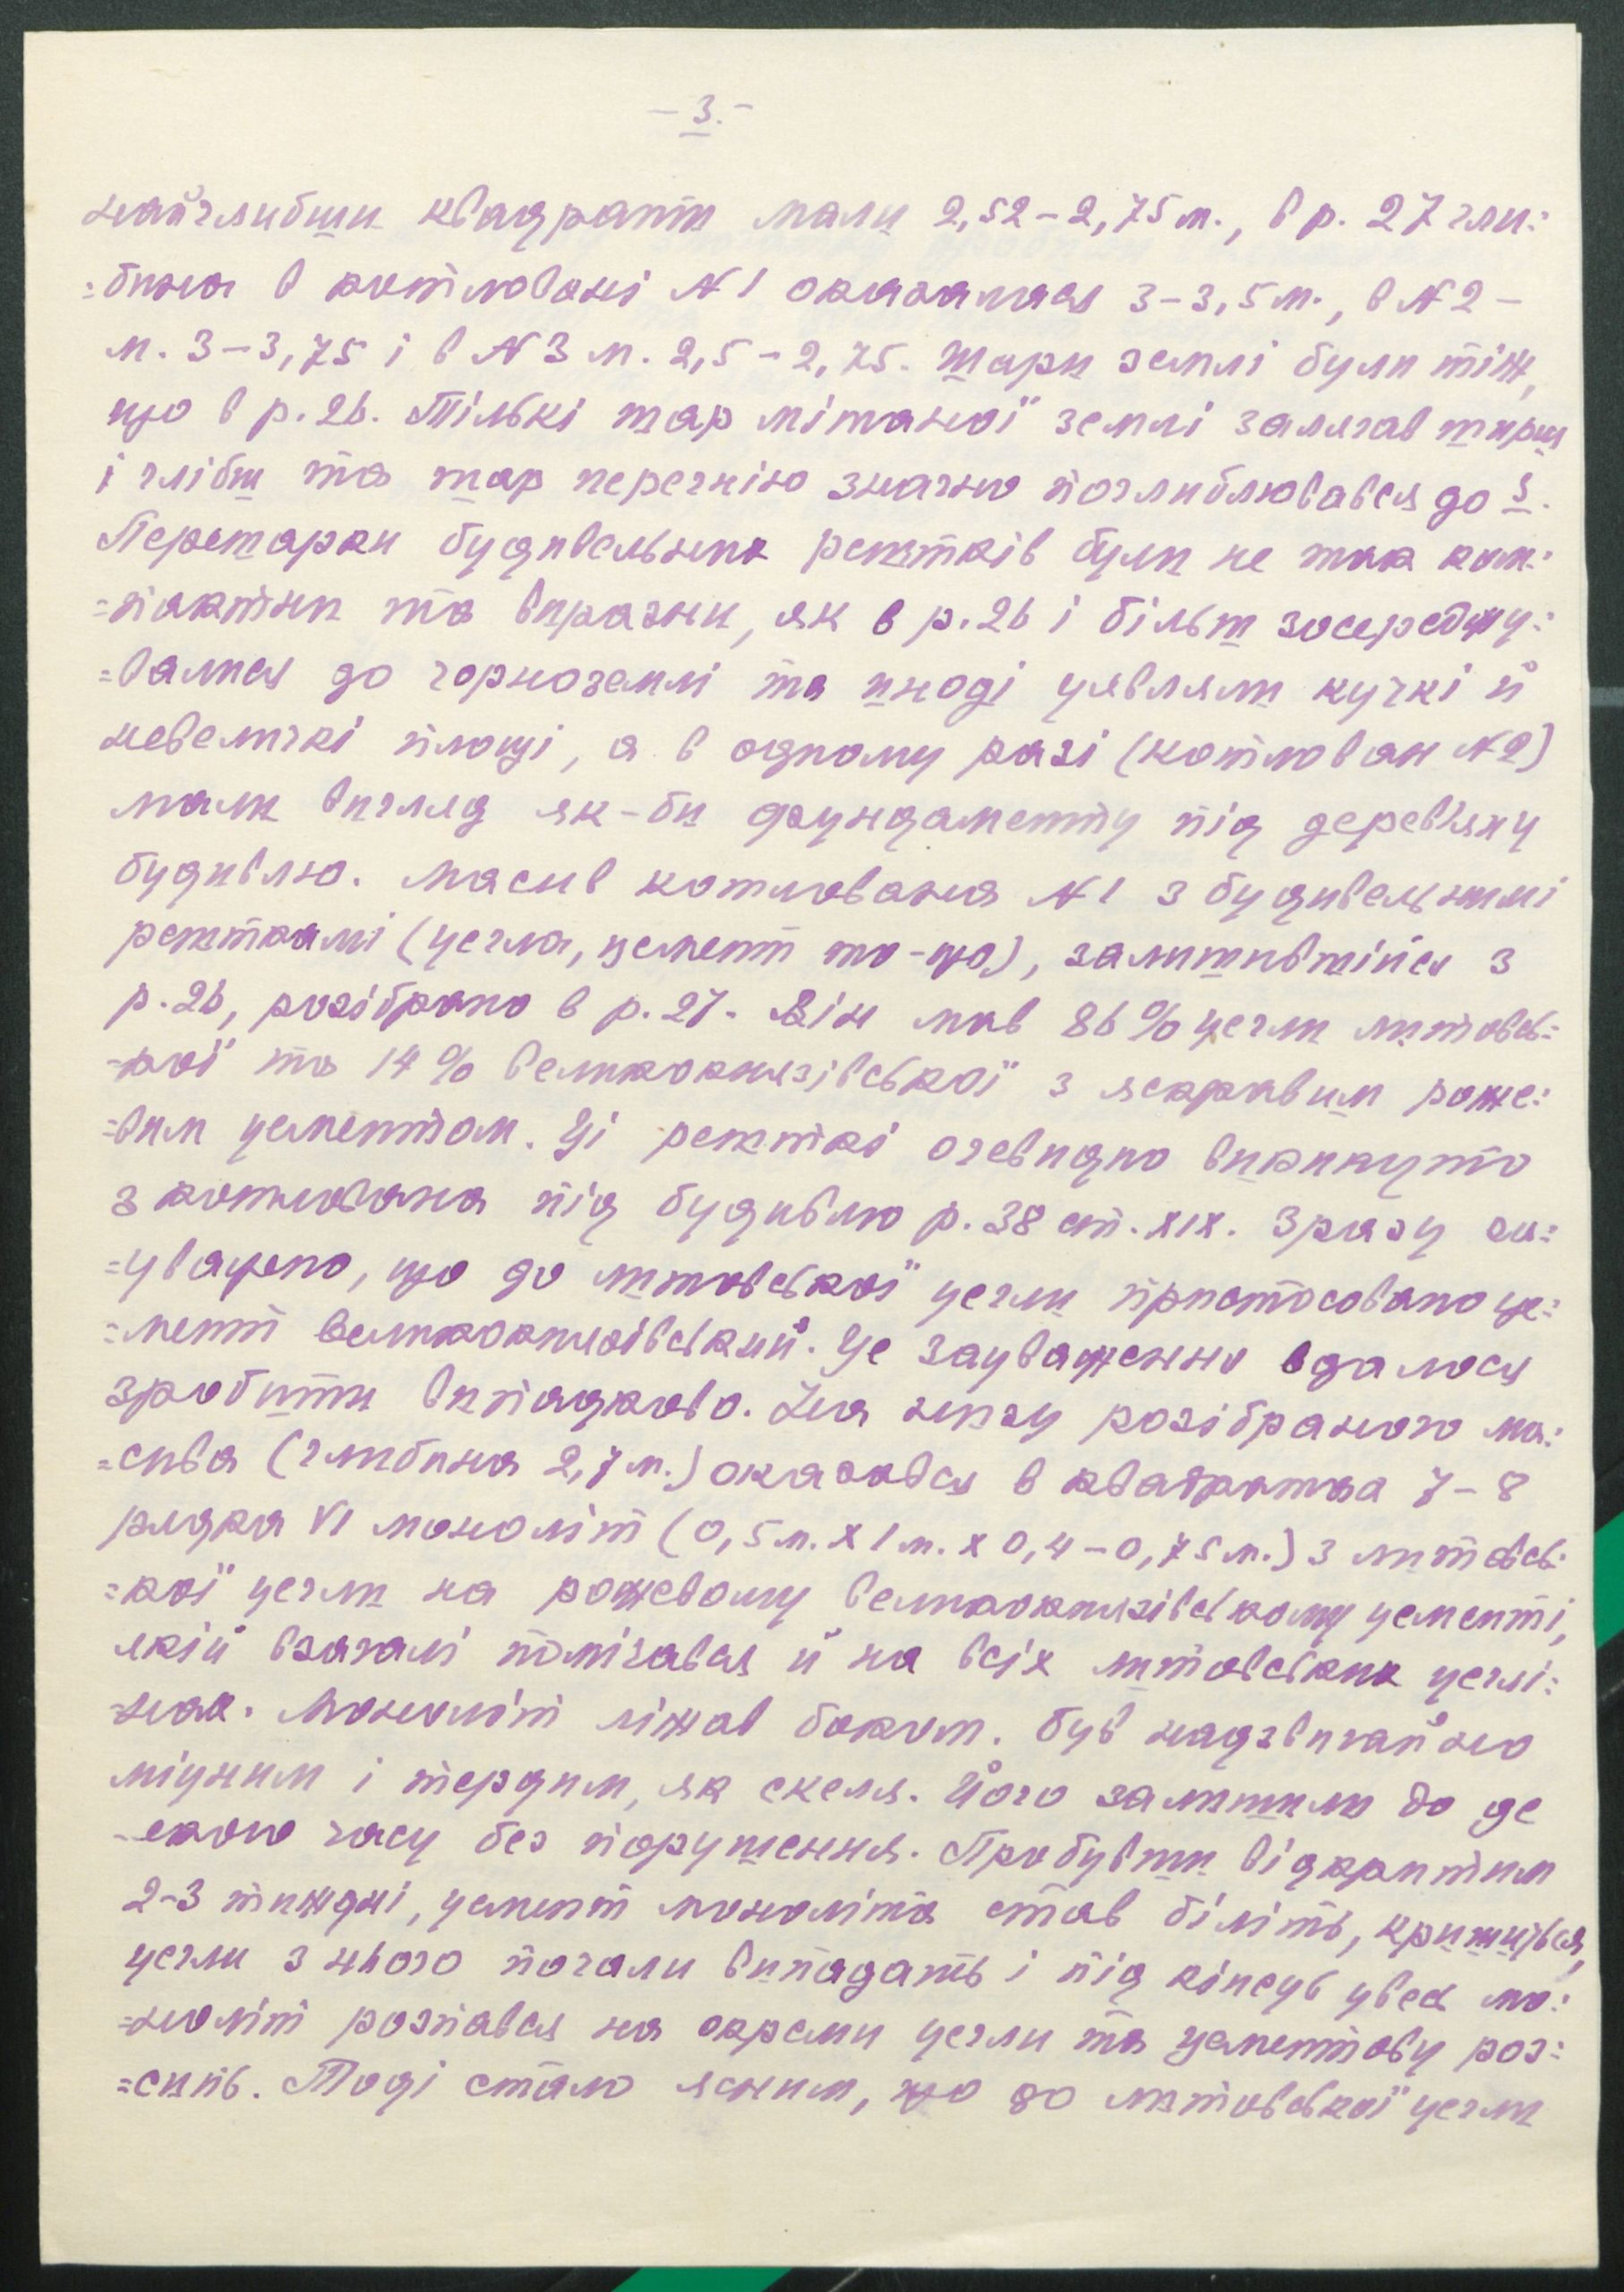 - 3. -
найглибши квадрати мали 2,52-2,75 м., в р. 27 гли:
=бина в котловані № 1 оказалася 3-3,5 м., в № 2 -
м. 3-3,75 і в № 3 м. 2,5-2,75. Шари землі були тіж,
що в р. 26. Тількі шар мішаної землі залягав ширш
і глібш та шар перегнію значно поглиблювався до S.
Перешарки будивельних рештків були не так ком:
=пактни та виразни, як в р. 26 і більш зосереджу:
=вались до чорноземлі та иноді уявляли кучкі й
невеличкі площі, а в одному разі (котлован № 2)
мали вигляд як-би фундаменту під деревляну
будивлю. Масив котлована № 1 з будивельнимі
решткамі (цегла, цемент то-що), залишившійся з
р. 26, розібрано в р. 27. Він мав 86% цегли литовсь:
=кої та 14% великокнязівської з яскравим роже:
=вим цементом. Ці решткі очевидно викинуто
з котлована під будивлю р. 38 ст. XIX. Зразу за:
=уважено, що до литовської цегли пристосовано це:
=мент великокнязівський. Це зауваженно вдалося
зробити випадково. На низу розібраного ма:
=сива (глибина 2,7 м.) оказався в квадратах 7-8
рядка VI моноліт (0,5 м. х 1 м. х 0,4-0,75 м.) з литовсь:
=кої цегли на рожевому великокнязівському цементі,
якій взагалі помічався й на всіх литовських цеглі:
=нах. Моноліт ліжав боком. Був надзвичайно
міцним і твердим, як скеля. Його залишили до де
=якого часу без порушення. Пробувши відкритим
2-3 тижні, цемент моноліта став біліть, кришиться,
цегли з нього почали випадать і під кінець увесь мо:
=ноліт розпався на окреми цегли та цементову роз:
=сипь. Тоді стало ясним, що до литовської цегли